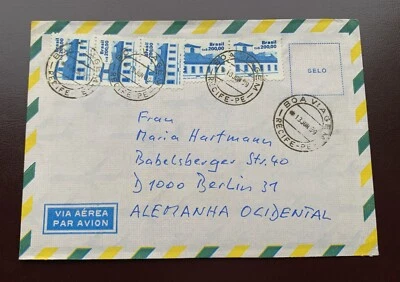 Brasil
Cz$ 200,00
BOA VIAGEM
RECIFE-PE
SELO
BOA VIAGEM
13 JUN 89
RECIFE-PE
Frau
Maria Hartmann
Babelsberger Str. 40
D 1000 Berlin 31
ALEMANHA OCIDENTAL
VIA AÉREA
PAR AVION